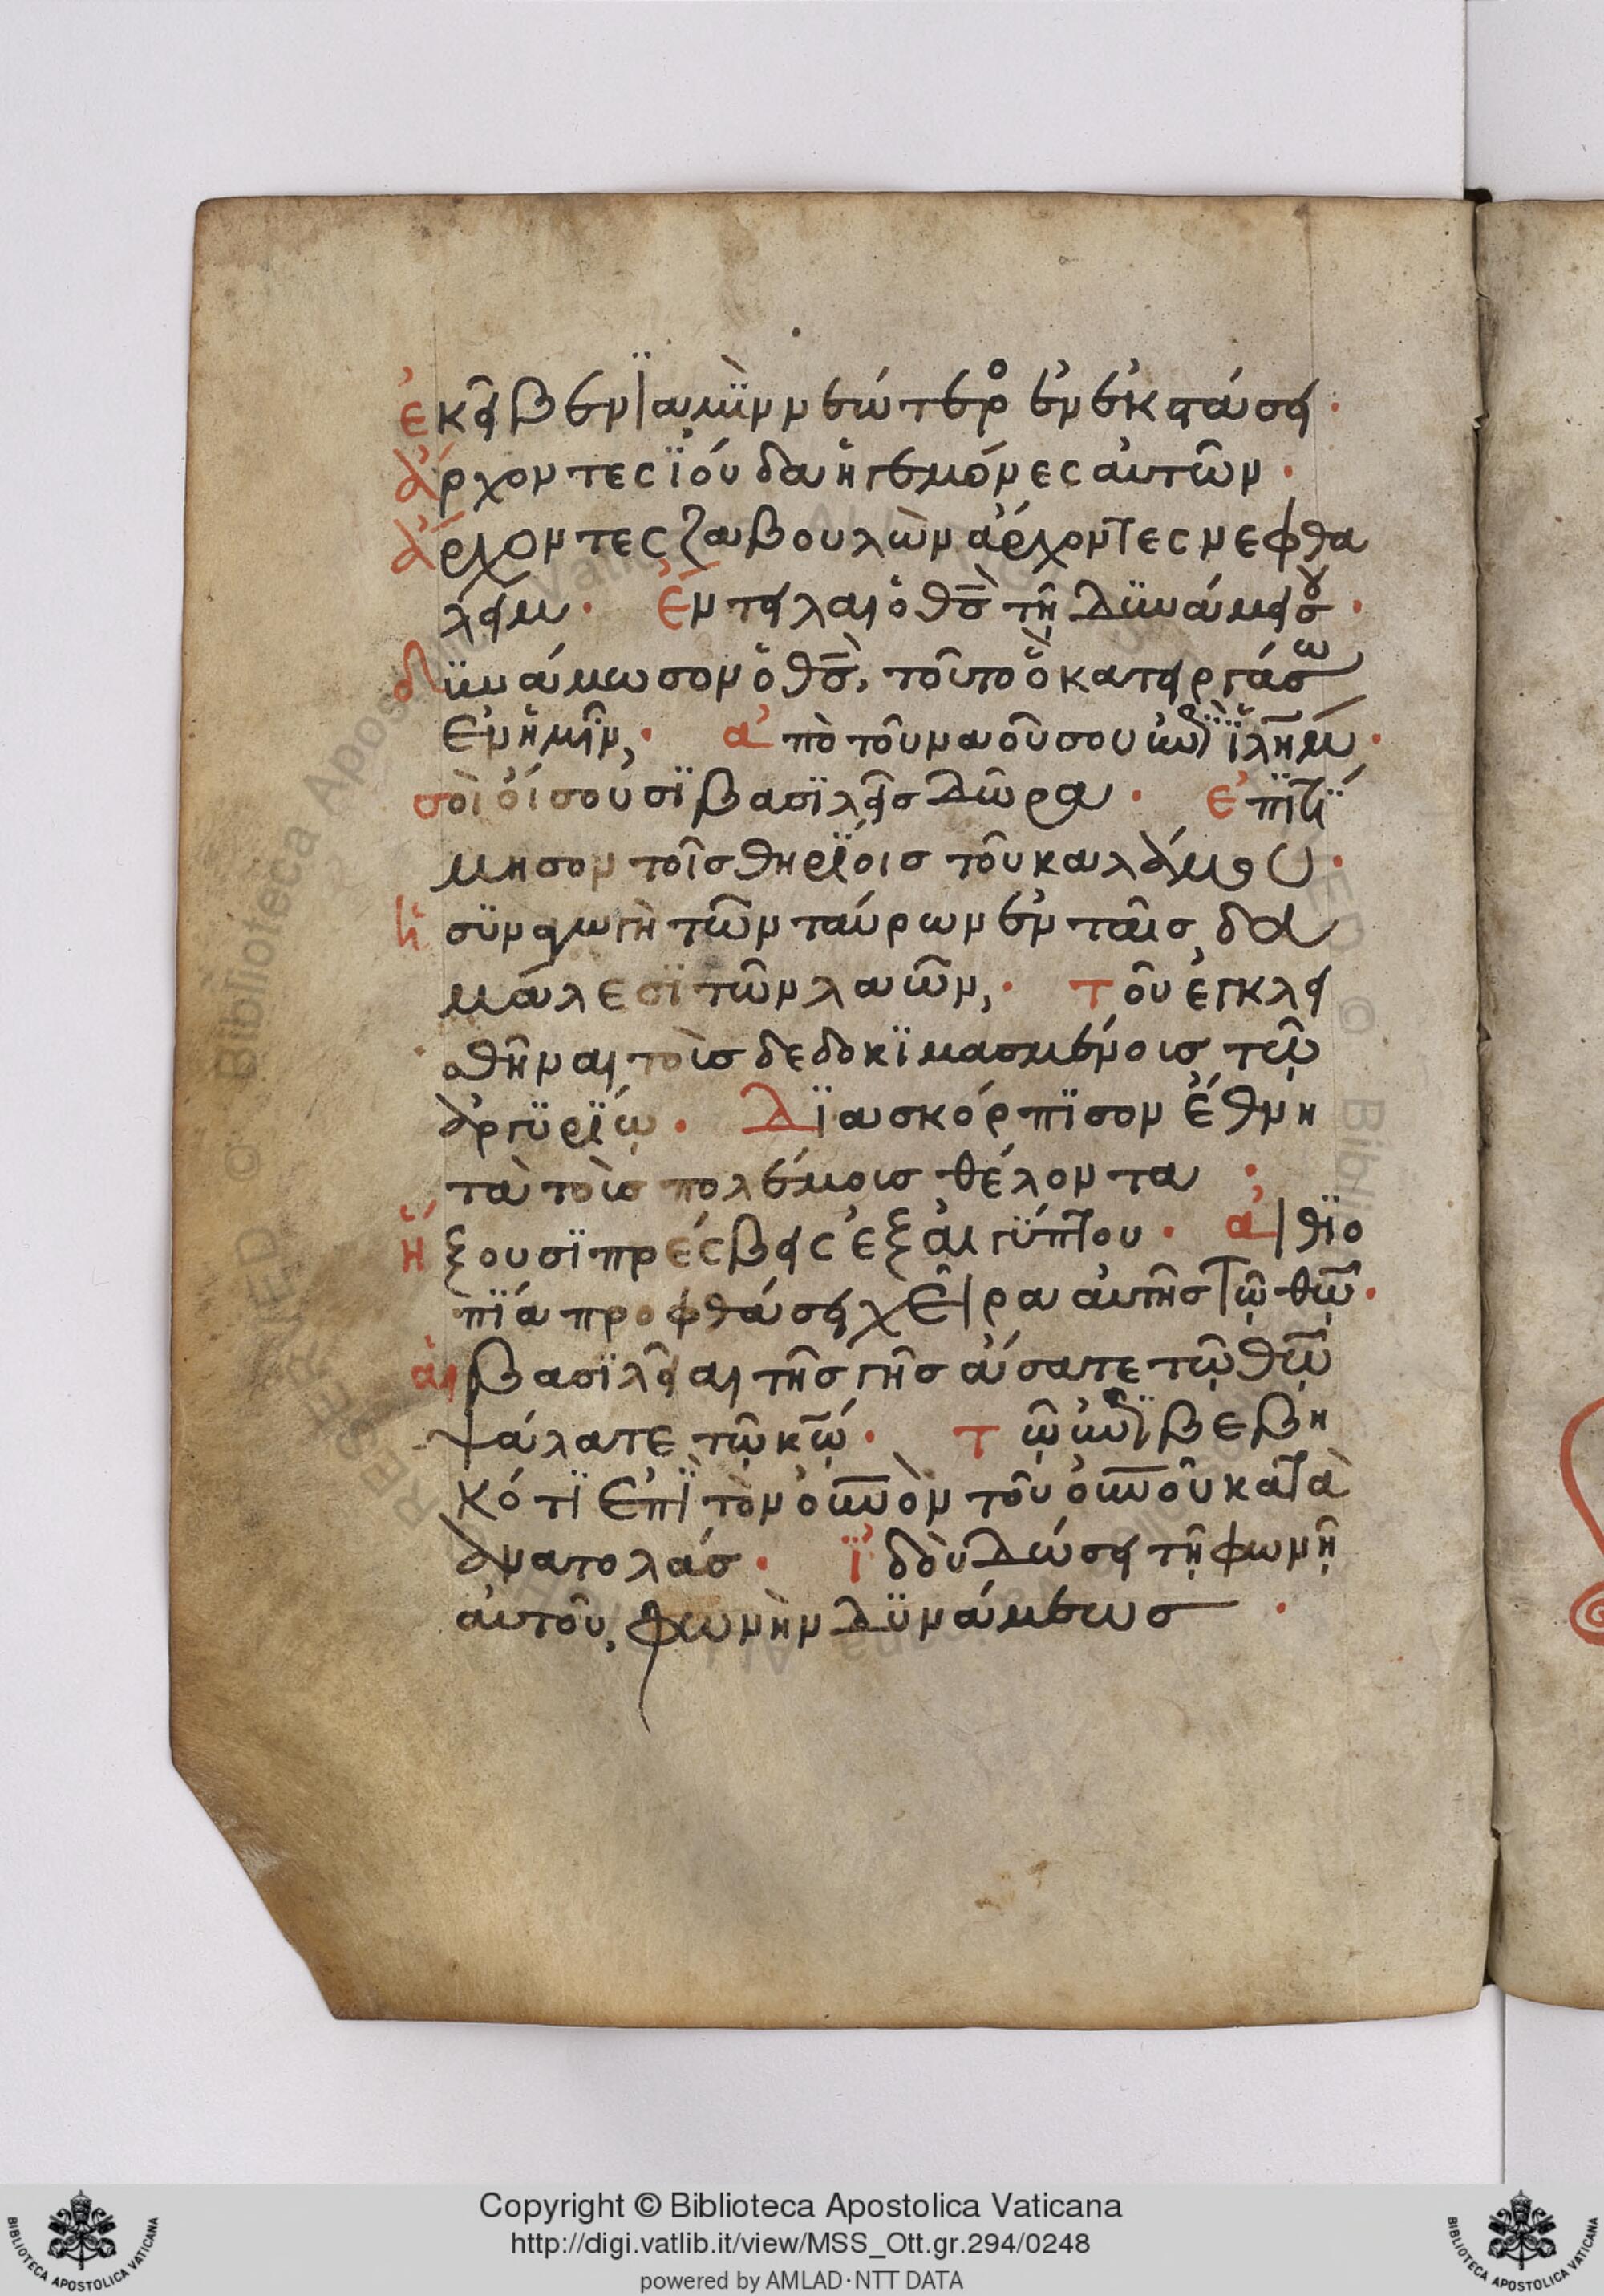 ἐκεῖ βενϊαμὶν νεώτερο ἐν ἐκστάσει·
ἄρχοντες ϊούδα ἡγεμόνες αὐτῶν·
ἄρχοντες ζαβουλὼν ἄρχοντες νεφθα
λείμ· Ἔντειλαι ὁ θς̄ τῇ δϋνάμει σου·
δϋνάμωσον ὁ θς̄, τοῦτο ὃ κατειργάσω
ἐν ἡμῖν,· ἀπὸ τοῦ ναοῦ σου ἐπὶ ϊλη̄μ·
σοὶ οἴσουσϊ βασϊλεῖς δῶρα· ἐπϊτί
μησον τοῖς θηρϊοις τοῦ καλάμου·
ἡ σϋναγωγὴ τῶν ταύρων ἐν ταῖς δα
μάλεσϊ τῶν λαῶν,· τοῦ ἐγκλει
σθῆναι τοὶς δεδοκϊμασμένοις τῷ
ἀργϋρϊῳ· Δϊασκόρπϊσον ἔθνη
τὰ τοὶς πολέμοις θέλοντα·
ἥξουσϊ πρέσβεις ἐξ αἰγϋπτου· αἰθϊο
πϊα προφθάσει χεῖρα αὐτῆς τῷ θω̄·
αἱ βασϊλεῖαι τῆς γῆς ᾄσατε τῷ θω̄
ψάλατε τῷ κω̄· τῷ ἐπϊβεβη
κότϊ ἐπὶ τὸν οὐνὸν τοῦ οὐνοῦ κατὰ
ἀνατολάς· ϊδοὺ δώσει τῇ φωνῇ
αὐτοῦ, φωνὴν δϋνάμεως·
Copyright © Biblioteca Apostolica Vaticana
http://digi.vatlib.it/view/MSS_Ott.gr.294/0248
powered by AMLAD·NTT DATA